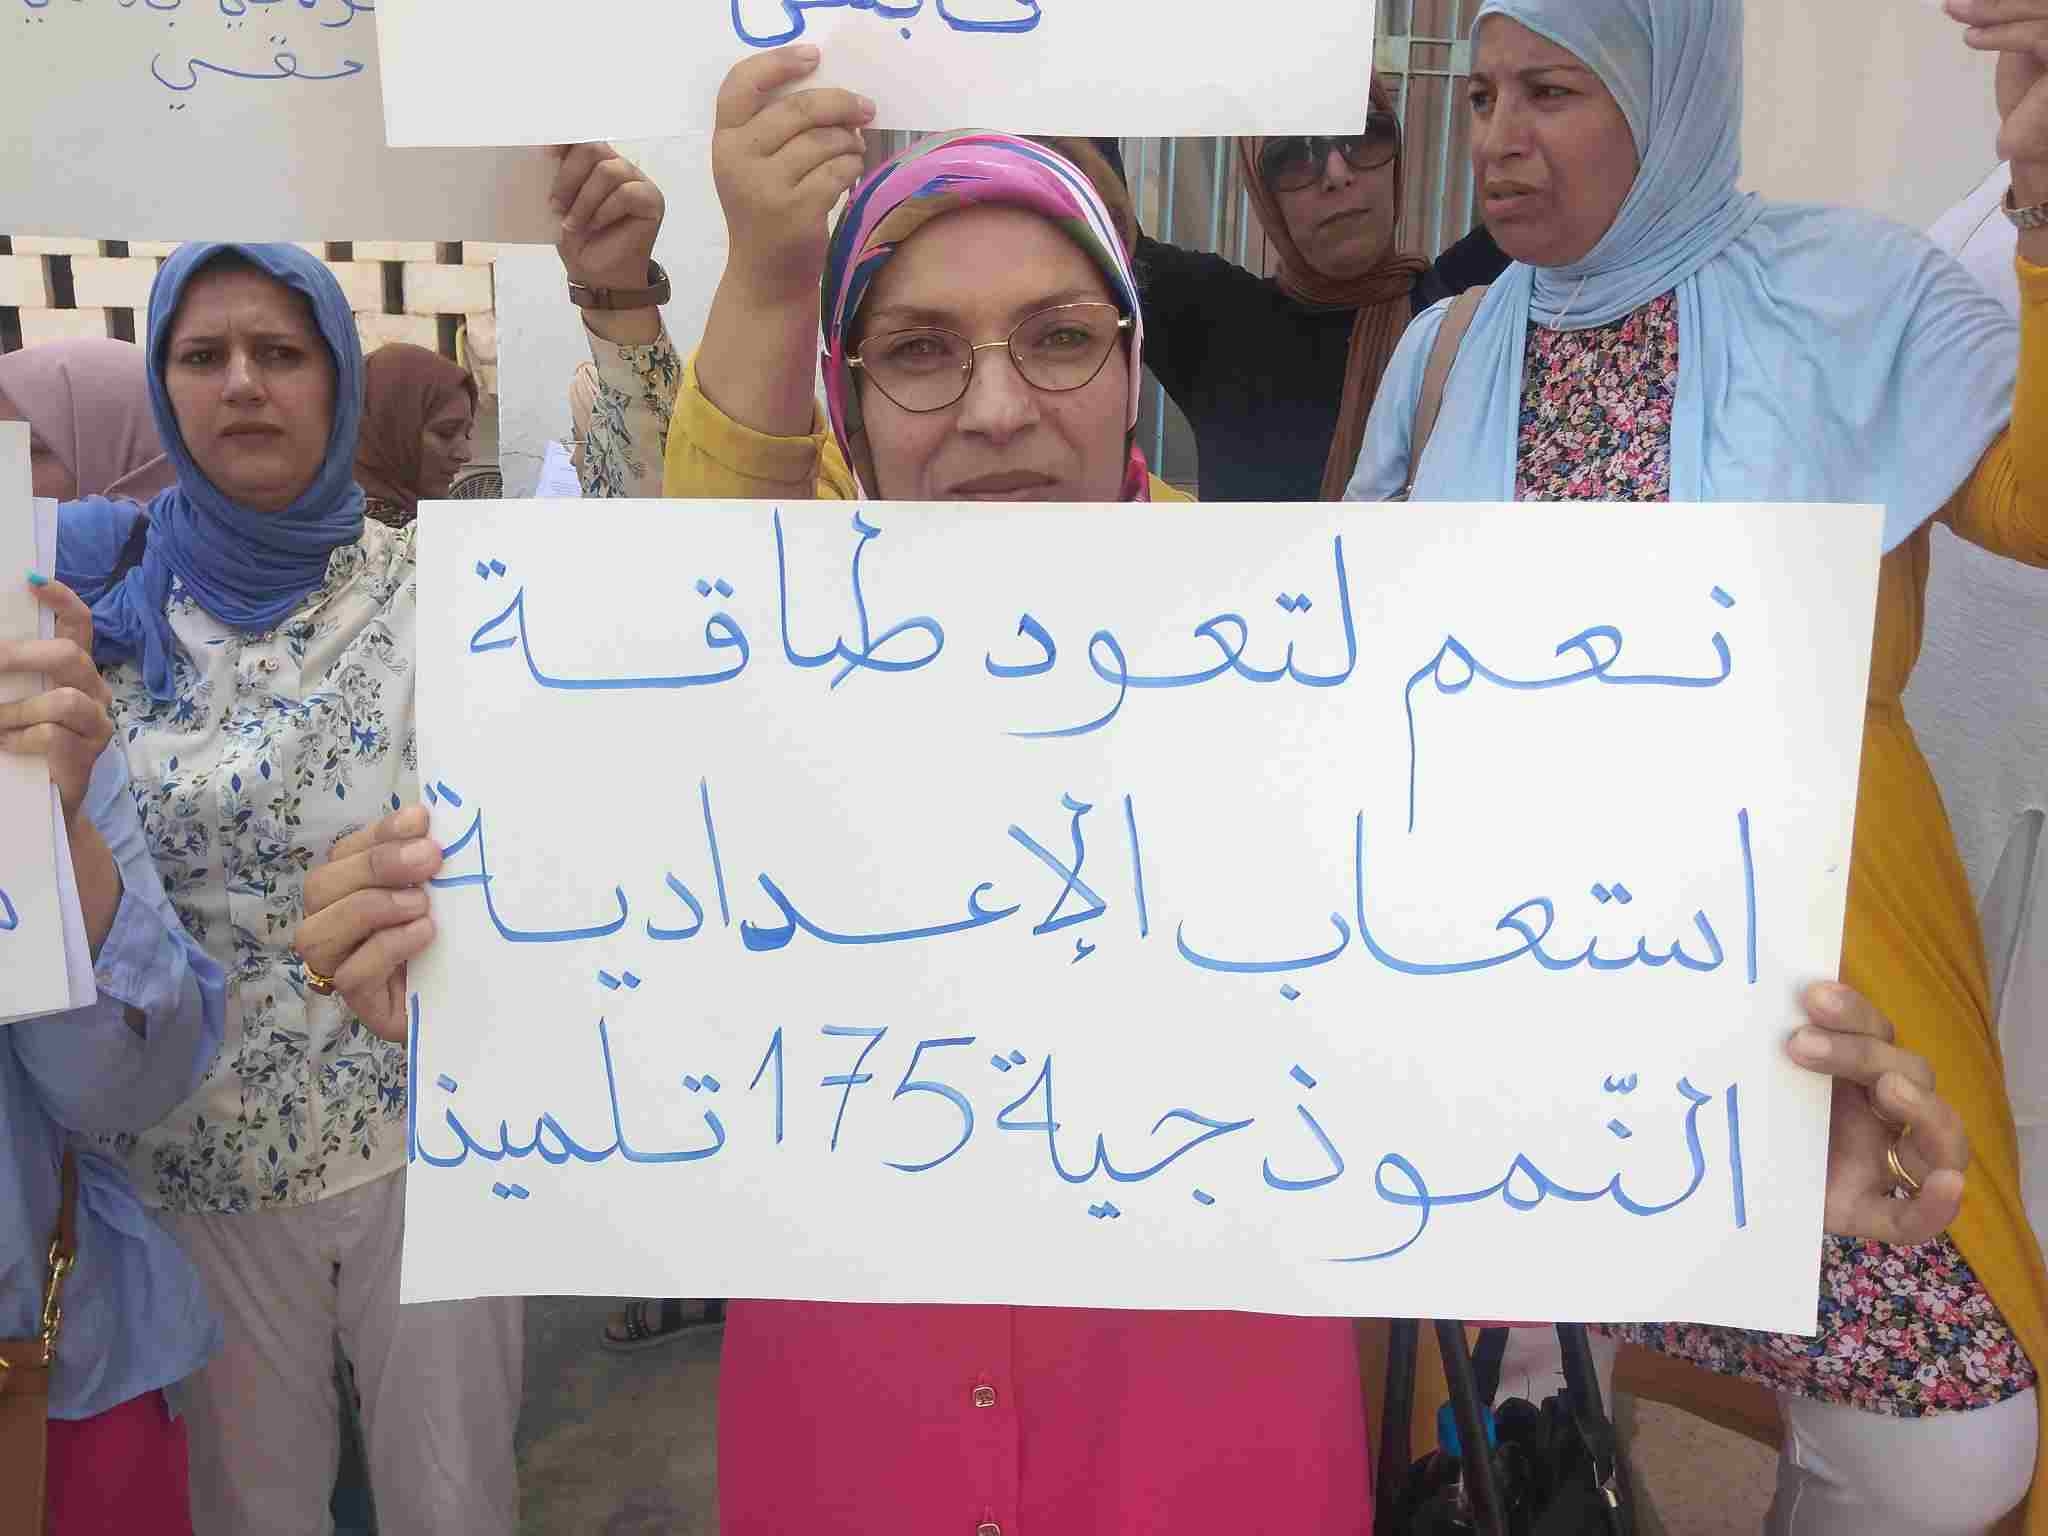 حقي
قابس
نعم لتعود طاقة
استعاب الإعدادية
النّموذجية 175 تلميذا